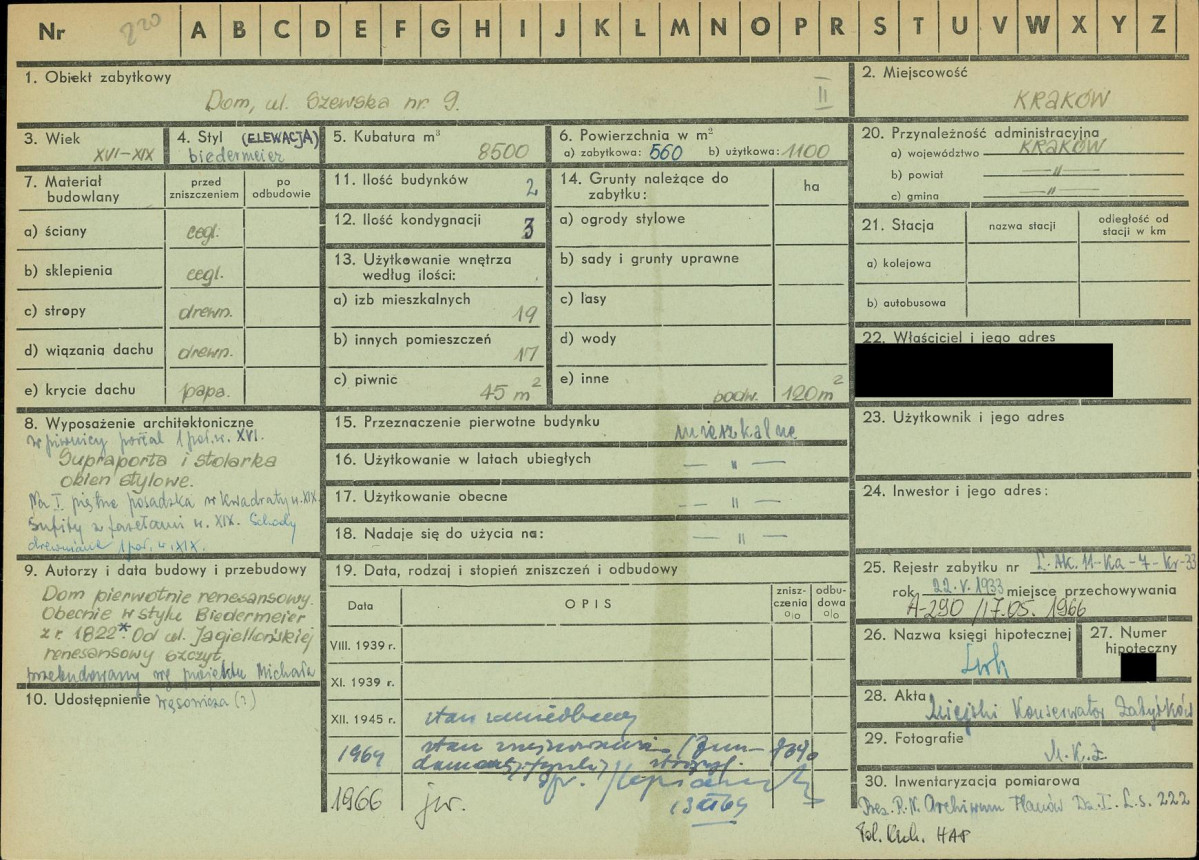 Nr 220 A B C D E F G H I J K L M N O P R S T U V W X Y Z
1. Obiekt zabytkowy
Dom, ul. Szewska nr 9.
II
2. Miejscowość
KRAKÓW
3. Wiek
XVI-XIX
4. Styl (ELEWACJA)
biedermeier
5. Kubatura m³
8500
6. Powierzchnia w m²
a) zabytkowa: 560 b) użytkowa: 1100
20. Przynależność administracyjna
a) województwo KRAKÓW
b) powiat —〃—
c) gmina —〃—
7. Materiał budowlany
przed zniszczeniem
po odbudowie
a) ściany cegl.
b) sklepienia cegl.
c) stropy drewn.
d) wiązania dachu drewn.
e) krycie dachu papa.
11. Ilość budynków 2
12. Ilość kondygnacji 3
13. Użytkowanie wnętrza
według ilości:
a) izb mieszkalnych 19
b) innych pomieszczeń 17
c) piwnic 45 m²
14. Grunty należące do
zabytku:
ha
a) ogrody stylowe
b) sady i grunty uprawne
c) lasy
d) wody
e) inne podw. 120m²
21. Stacja
nazwa stacji
odległość od
stacji w km
a) kolejowa
b) autobusowa
22. Właściciel i jego adres
23. Użytkownik i jego adres
24. Inwestor i jego adres:
8. Wyposażenie architektoniczne
w piwnicy portal 1 poł. w. XVI.
Supraporta i stolarka
okien stylowe.
Na I piętrze posadzka w kwadraty w. XIX.
Sufity z fasetami w. XIX. Schody
drewniane 1 poł. w. XIX.
15. Przeznaczenie pierwotne budynku mieszkalne
16. Użytkowanie w latach ubiegłych — 〃 —
17. Użytkowanie obecne — 〃 —
18. Nadaje się do użycia na: — 〃 —
9. Autorzy i data budowy i przebudowy
Dom pierwotnie renesansowy.
Obecnie w stylu Biedermeier
z r. 1822* Od ul. Jagiellońskiej
renesansowy szczyt.
przebudowany wg projektu Michała
Wąsowicza (?)
10. Udostępnienie
19. Data, rodzaj i stopień zniszczeń i odbudowy
Data
OPIS
znisz-
czenia
o/o
odbu-
dowa
o/o
VIII. 1939 r.
XI. 1939 r.
XII. 1945 r. stan zaniedbany
1964 stan
1966 jw.
25. Rejestr zabytku nr L. Ak. 11-Ka-7-Kr-33
rok 22.V.1933 miejsce przechowywania
A-290 /17.05.1966
26. Nazwa księgi hipotecznej
Lwh
27. Numer
hipoteczny
28. Akta Miejski Konserwator Zabytków
29. Fotografie
M.K.Z.
30. Inwentaryzacja pomiarowa
Prez. R.N. Archiwum Planów Dz. I. L.s. 222